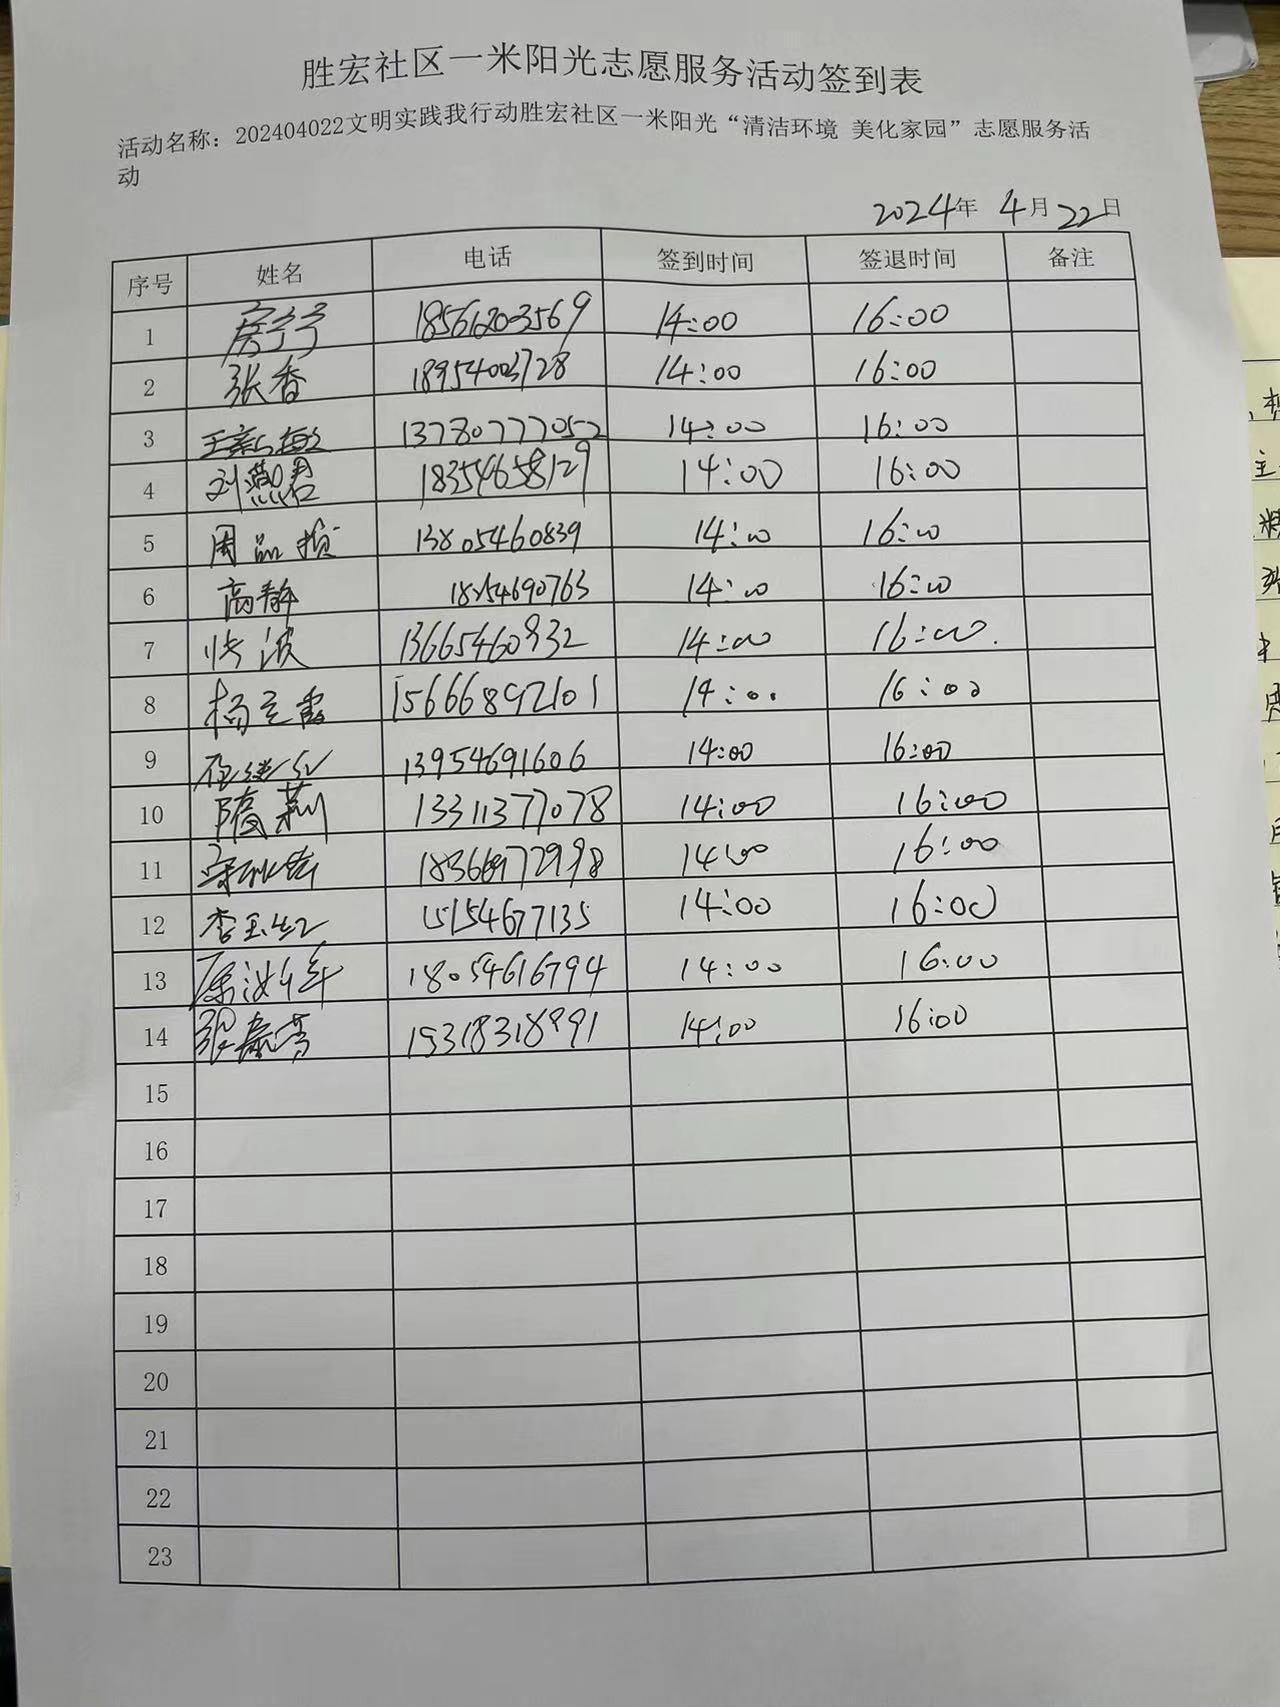 胜宏社区一米阳光志愿服务活动签到表
活动名称：202404022文明实践我行动胜宏社区一米阳光“清洁环境 美化家园”志愿服务活
动
2024年 4月22日
序号 姓名 电话 签到时间 签退时间 备注
1 房宁宁 18561203569 14:00 16:00
2 张香 18954003728 14:00 16:00
3 13780777052 14:00 16:00
4 刘燕君 18354658129 14:00 16:00
5 周品贞 13805460839 14:00 16:00
6 高静 14:00 16:00
7 张波 13665460932 14:00 16:00
8 杨立霞 15666892101 14:00 16:00
9 13954691606 14:00 16:00
10 隋莉 13311377078 14:00 16:00
11 14:00 16:00
12 李玉红 15154677135 14:00 16:00
13 18054616794 14:00 16:00
14 15318318991 14:00 16:00
15
16
17
18
19
20
21
22
23